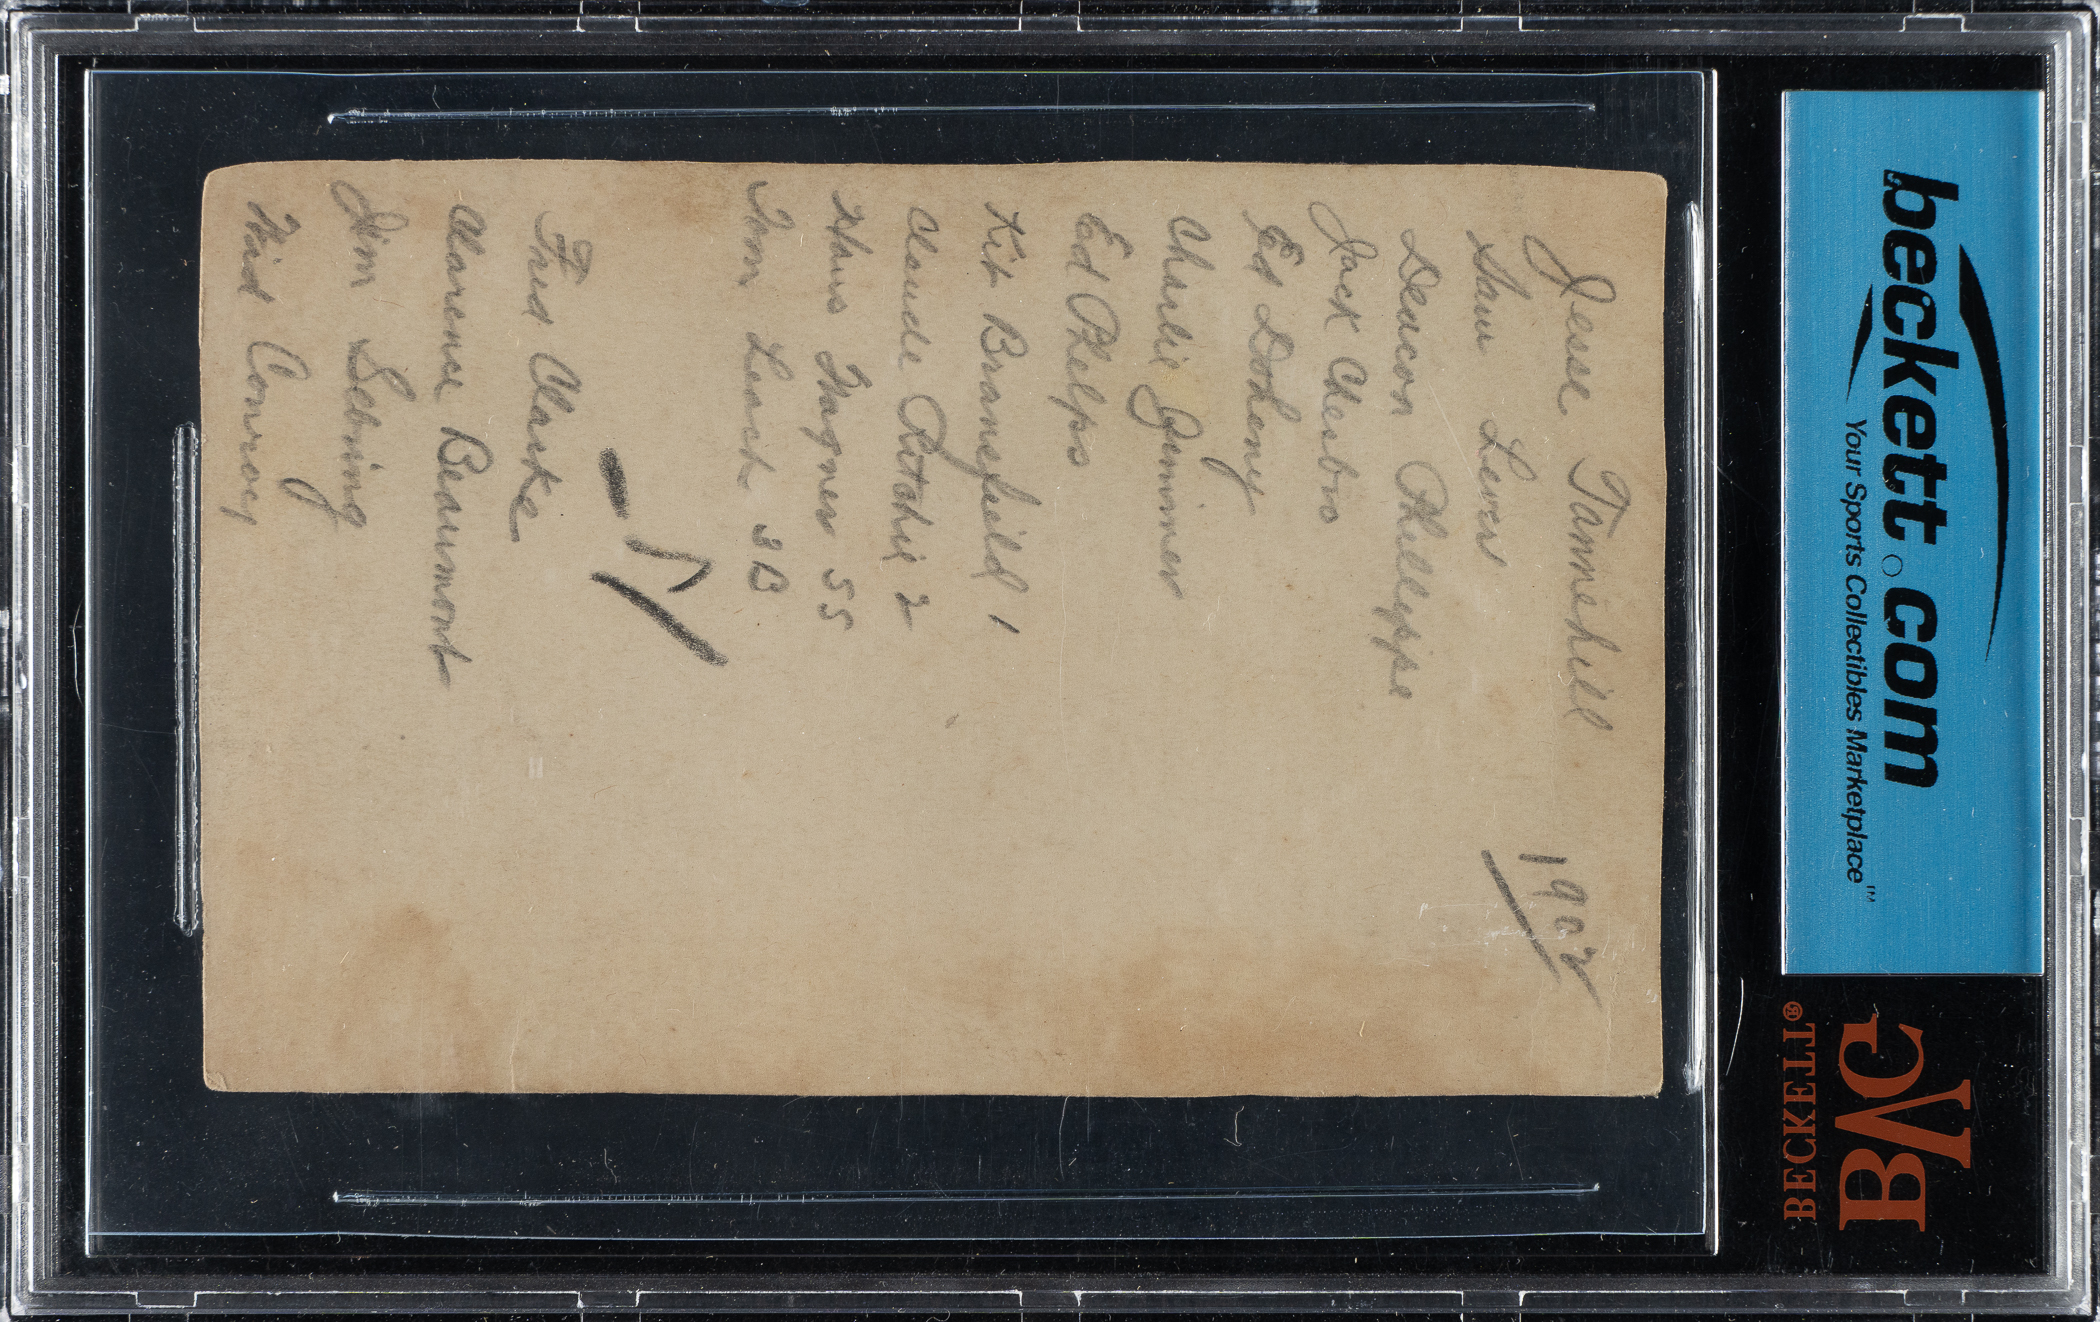 Jesse Tannehill
1902
Sam Lever
Deacon Phillippe
Jack Chesbro
Ed Doheny
Charlie Jemmer
Ed Phelps
Kit Bransfield 1
Claude Ritchie 2
Hans Wagner SS
Tom Leach 3B
Fred Clarke
Clarence Beaumont
Jim Sebring
Wid Conroy
beckett.com
Your Sports Collectibles Marketplace™
BECKETT®
BVG